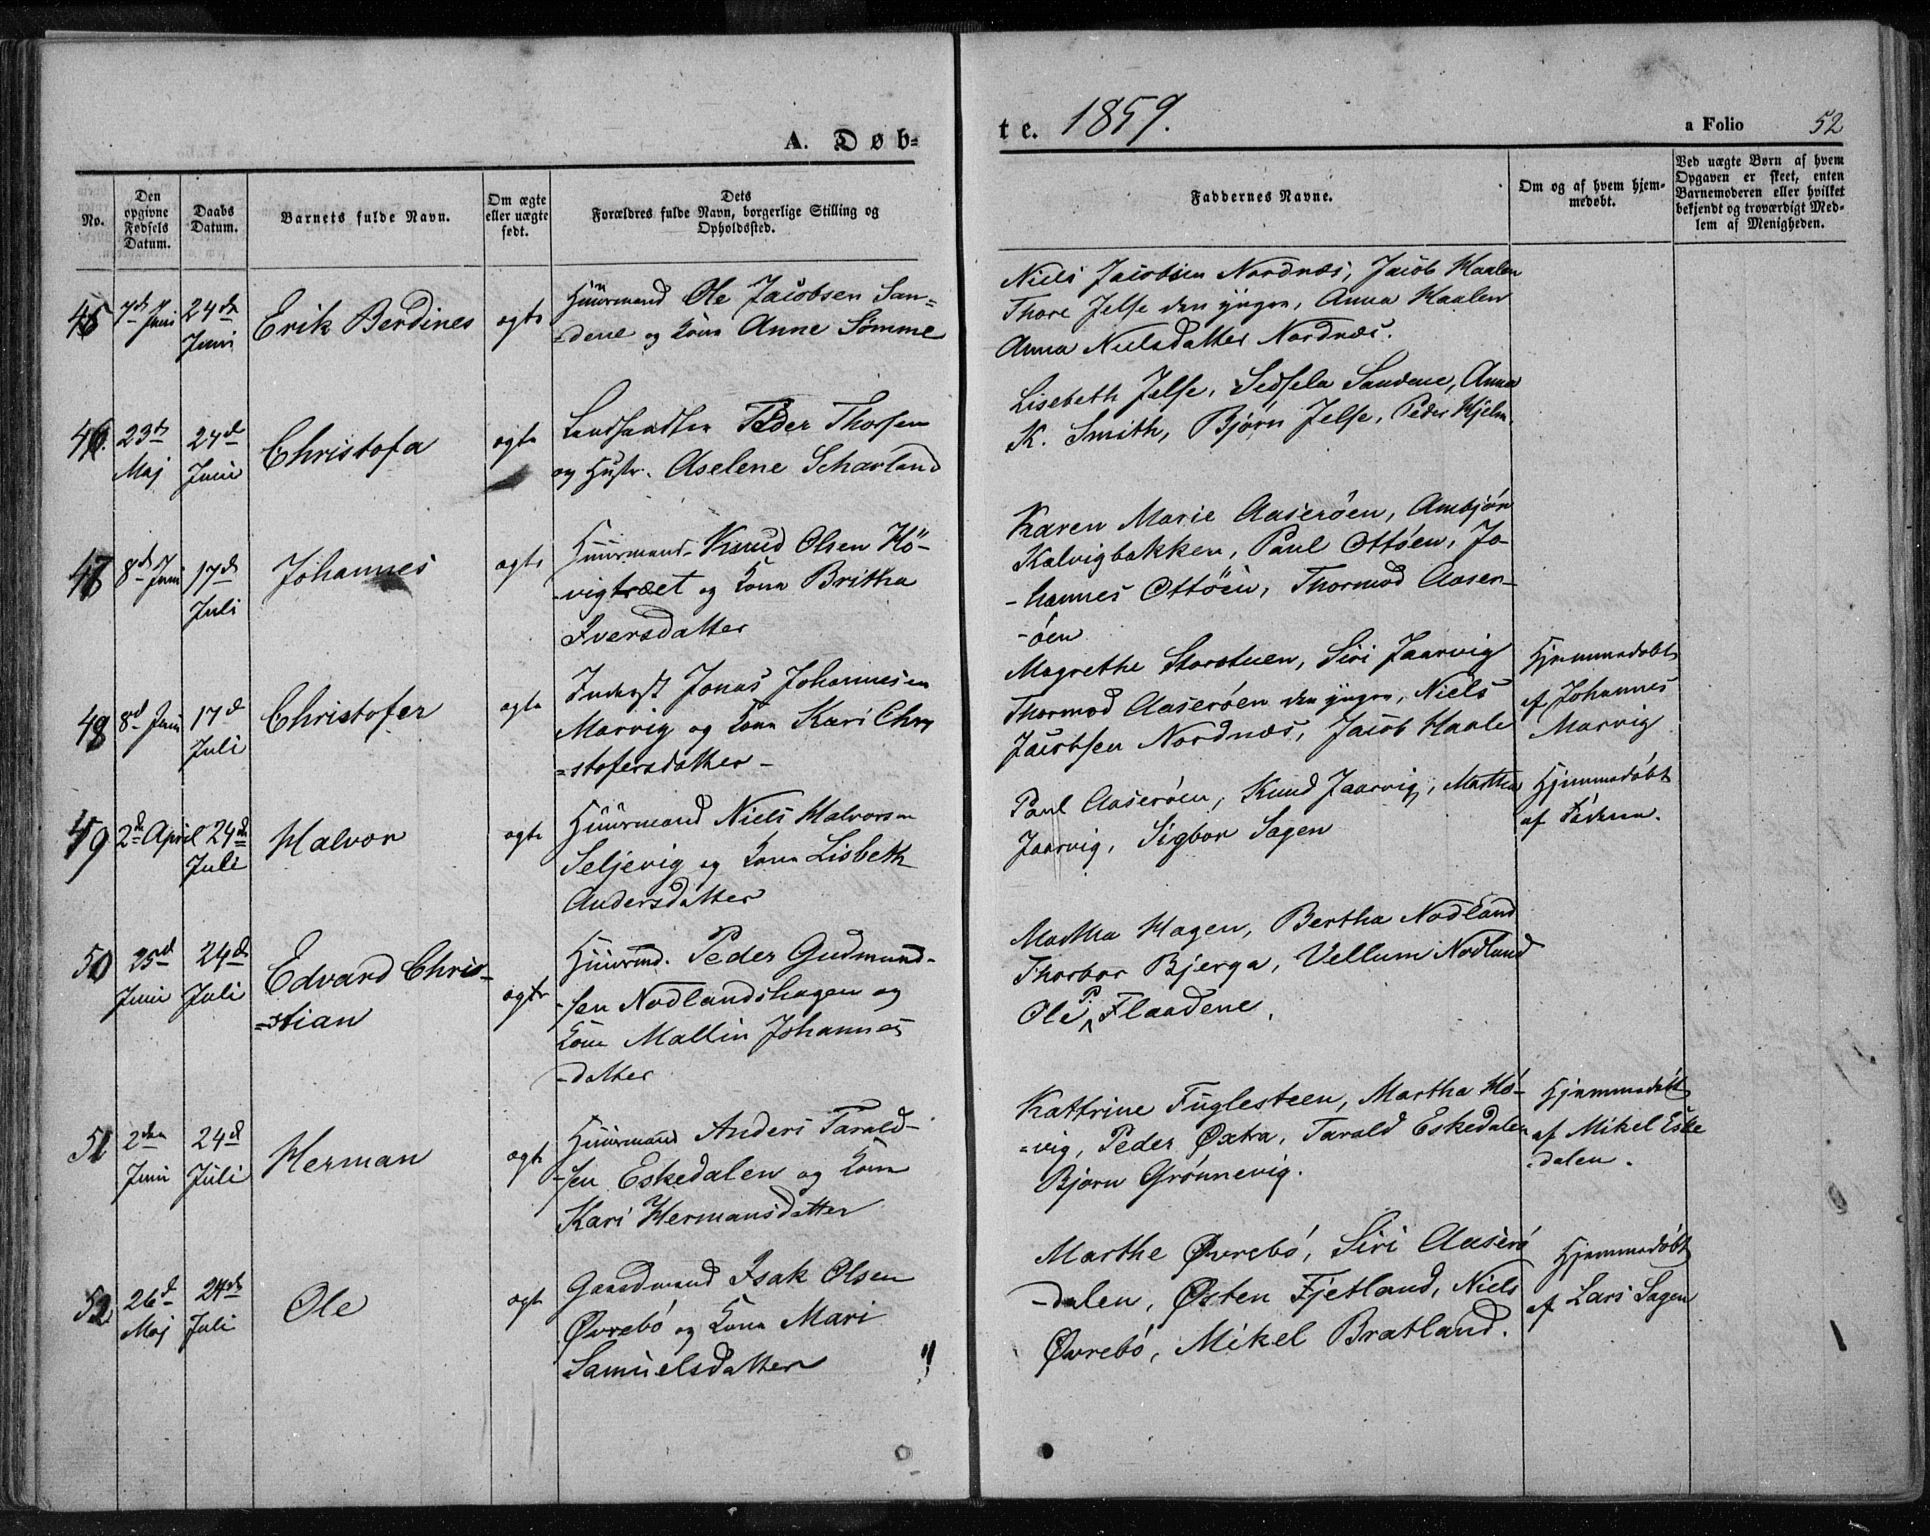 A. Døb-
te. 1859.
a Folio 52
No.
Den opgivne Fødsels Datum.
Daabs Datum.
Barnets fulde Navn.
Om ægte eller uægte født.
Dets Forældres fulde Navn, borgerlige Stilling og Opholdssted.
Faddernes Navne.
Om og af hvem hjemmedøbt.
Ved uægte Børn af hvem Opgaven er skeet, enten Barnemoderen eller hvilket bekjendt og troværdigt Medlem af Menigheden.
45 7de Juni 24de Juni Erik Berdines ægte
Huusmand Ole Jacobsen San=
-dene og Kone Anne Sømme
Niels Jacobsen Nordnæs, Jacob Haalen
Thore Jelse den yngre, Anna Haalen
Anna Nielsdatter Nordnæs.
46. 23de Maj 24de Juni Christofa ægte
Peder Thorsen
og Hustr. Aselene Scharland
Lisebeth Jelse, Sedsela Sandene, Anna
K. Smith, Bjørn Jelse, Peder Hjelm.
47 8de Juni 17de Juli Johannes ægte
Huusmand Knud Olsen Hö-
-vigtræet og Kone Britha
Iversdatter
Karen Marie Aaserøen, Ambjør
Kalvigbakken, Paul Ottøen, Jo-
-hannes Ottøen, Thormod Aaser-
-øen
48 8d Juni 17d Juli Christofer ægte
Inderst Jonas Johannesen
Marvig og Kone Kari Chri
=stofersdatter -
Magrethe Storstuen, Siri Jaarvig
Thormod Aaserøen den yngre, Niels
Jacobsen Nordnæs, Jacob Haale
Hjemmedøbt
af Johannes
Marvig
49 2de April 24de Juli Halvor ægte
Huusmand Niels Halvorsen
Seljevig og Kone Lisbeth
Andersdatter
Paul Aaserøen, Knud Jaarvig, Martha
Jaarvig, Sigbor Sagen
Hjemmedøbt
af Faderen.
50 25d Juni 24de Juli Edvard Chris-
=stian ægte
Huusmd. Peder Gudmund-
-sen Nodlandshagen og
Kone Mallin Johannes
-datter
Martha Hagen, Bertha Nodland
Thorbor Bjerga, Vellum Nodland
Ole P. Flaadene,
51 2den Juni 24d Juli Herman ægte
Huusmand Anders Tarald-
-sen Eskedalen og Kone
Kari Hermansdatter
Kattrine Fuglesteen, Martha Hø-
=vig, Peder Øxtra, Tarald Eskedalen
Bjørn Grønnevig.
Hjemmedøbt
af Mikel Eske
-dalen.
52 26d Maj 24de Juli Ole ægte
Gaardmand Isak Olsen
Øvrebø og Kone Mari
Samuelsdatter
Marthe Øvrebø, Siri Aaserø
-dalen, Østen Fjetland, Niels
Øvrebø, Mikel Bratland.
Hjemmedøbt
af Lars Sagen